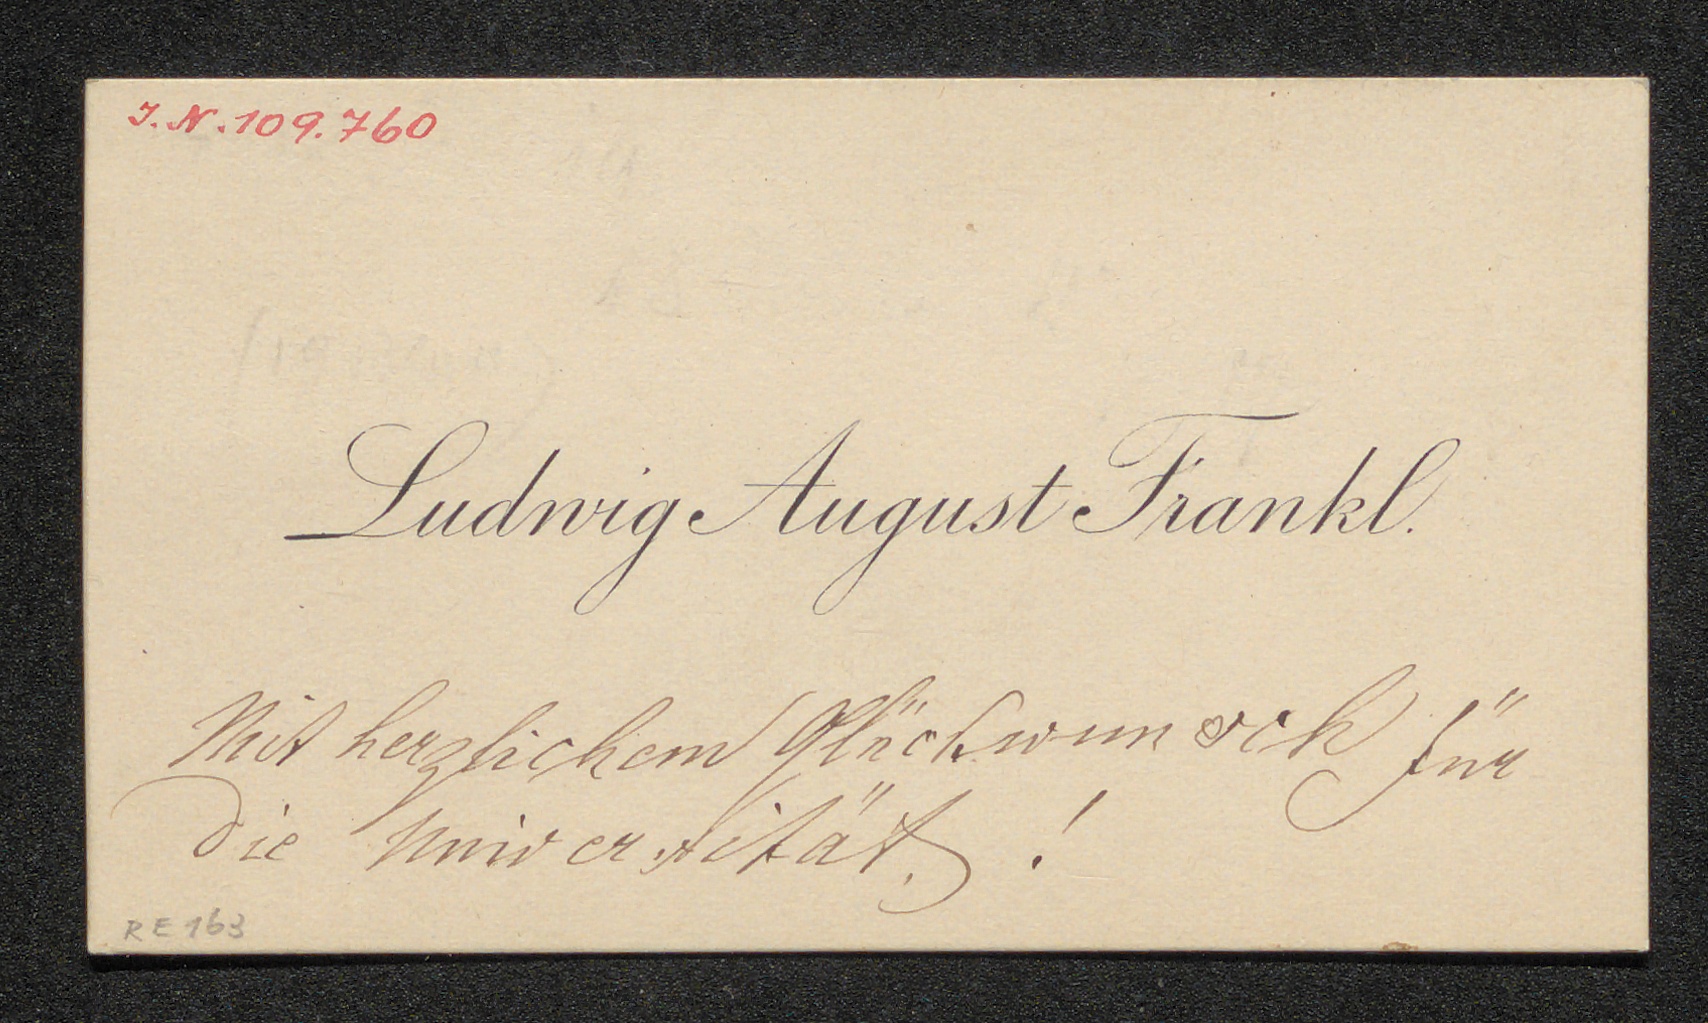 J.N. 109.760
Ludwig August Frankl.
Mit herzlichem Glückwunsch für
die Universität. !
RE 163